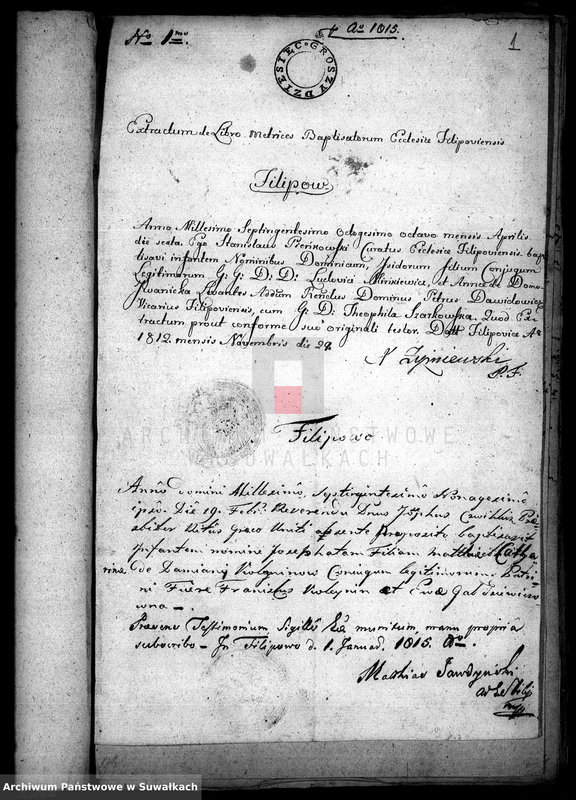 No 1mo
Ao 1815.
1
DZIESIĘC GROSZY
Extractum de Libro Metrices Baptisatorum Ecclesiæ Filipoviensis
Filipow
Anno Millesimo Septingentesimo Octogesimo octavo mensis Aprilis
die sexta. Ego Stanislaus Curatus Ecclesiæ Filipoviensis bap
tisavi infantem Nominibus Dominicum, Isidorum Filium Conjugum
Legitimorum G: G: D: D: Ludovici Minkiewicz, et Annæ de Domo
Iwanicka Levantes Dominus Petrus Dawidowicz
Vicarius Filipoviensis, cum G: D: Theophila Szarkowska. Quod Ex
tractum prout conforme suo originali testor. Datt Filipovice Ao
1812. mensis Novembris die 29.
P. F.
ARCHIWUM PAŃSTWOWE
W SUWAŁKACH
Filipowo
Anno Domini Millesimo, Septingentesimo Nonagesimo
ipso Die 19. Febr. Reverendus Dnus Josephus
Ritus Græco Uniti absente Præposito baptisavit
infantem nomine Josephatam Filiam Matthiæ et Catha
rinæ de Conjugum legitimorum. Patri
ni Fuere Franciscus et Eva
owna —
Præsens Testimonium Sigillo munitum, manu propria
subscribo — In Filipowo d. 1. Januar. 1815. Ao —
Matthias
Archiwum Państwowe w Suwałkach